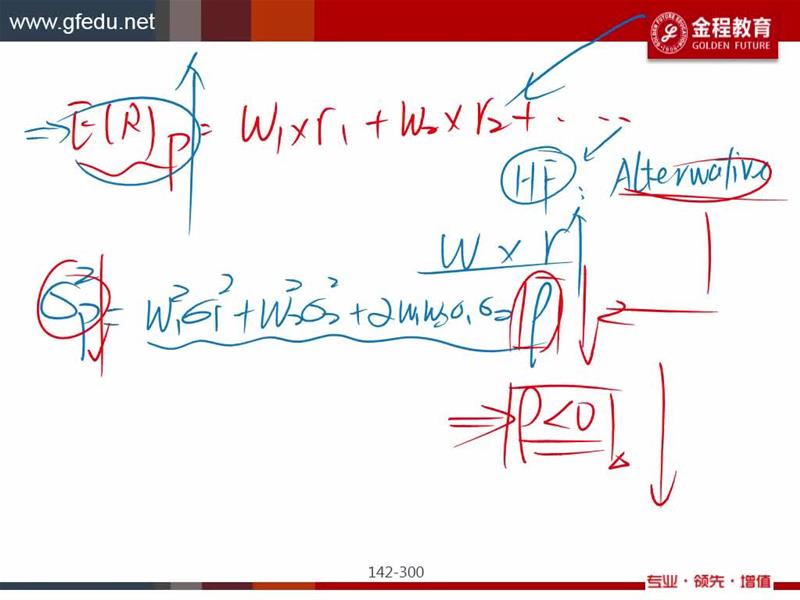 www.gfedu.net
金程教育
GOLDEN FUTURE
⇒ E(R)p = W₁×r₁ + W₂×r₂ + · ...
HF : Alternative
W × r
σp² = W₁²σ₁² + W₂²σ₂² + 2W₁W₂σ₁σ₂ρ
⇒ ρ<0
142-300
专业·领先·增值